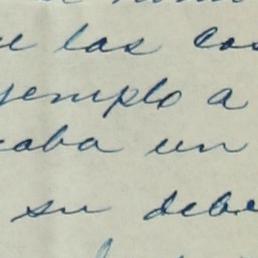 las cos
jemplo a
caba un
su debe